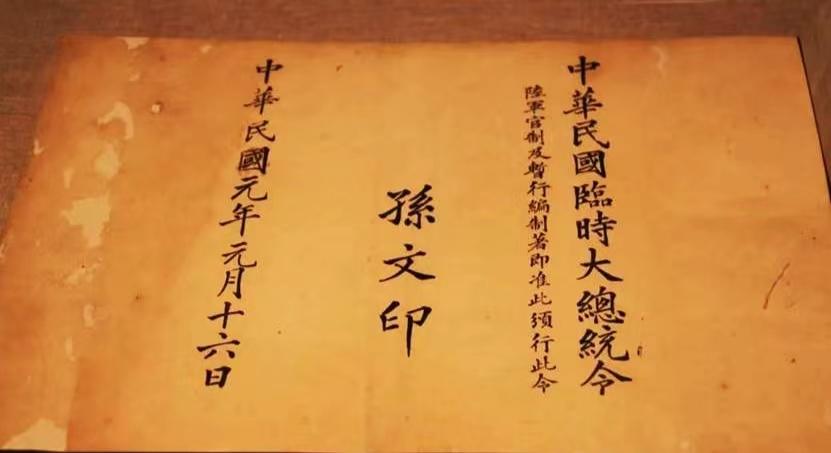 中華民國臨時大總統令
陸軍官制及暫行編制著即准此頒行此令
孫文印
中華民國元年元月十六日